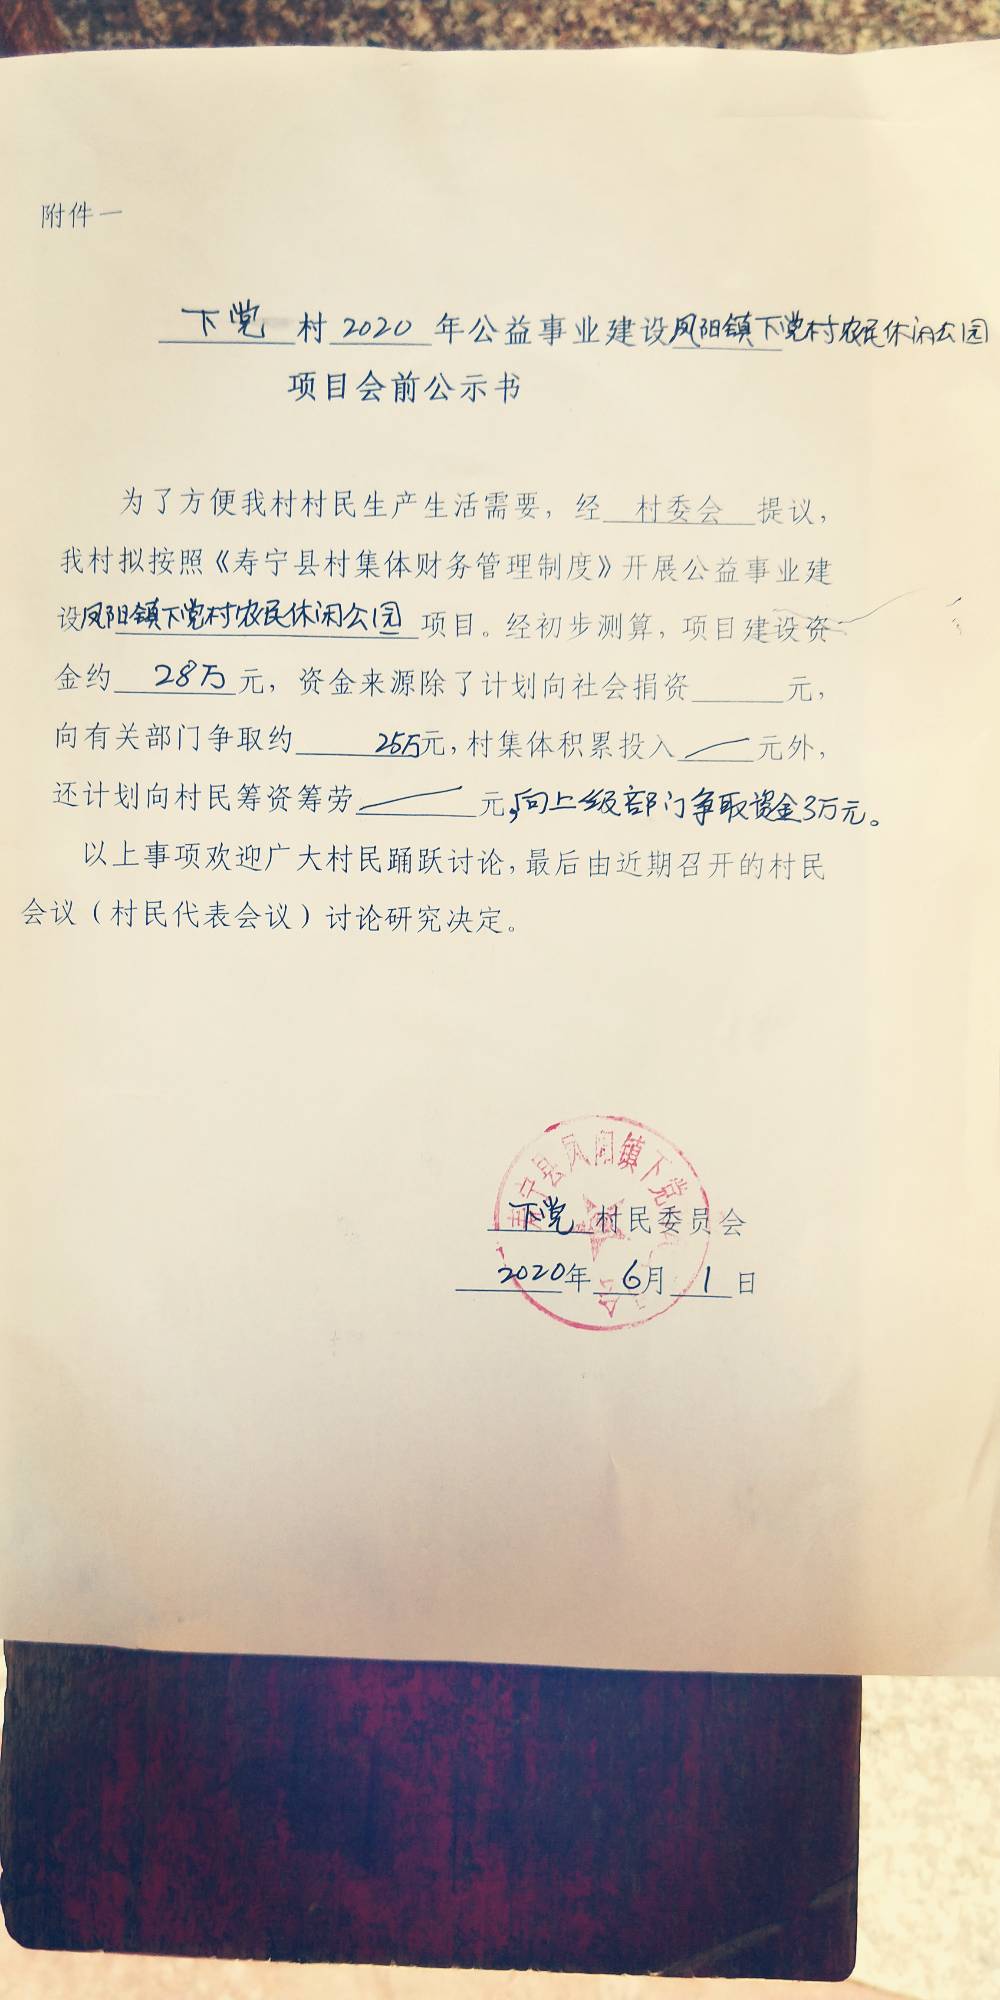 附件一
下党村2020年公益事业建设凤阳镇下党村农民休闲公园
项目会前公示书
为了方便我村村民生产生活需要，经 村委会 提议，
我村拟按照《寿宁县村集体财务管理制度》开展公益事业建
设凤阳镇下党村农民休闲公园 项目。经初步测算，项目建设资
金约 28万 元，资金来源除了计划向社会捐资______元，
向有关部门争取约 25万元，村集体积累投入 / 元外，
还计划向村民筹资筹劳 / 元，向上级部门争取资金3万元。
以上事项欢迎广大村民踊跃讨论，最后由近期召开的村民
会议（村民代表会议）讨论研究决定。
寿宁县凤阳镇下党
下党 村民委员会
2020年 6月 1日